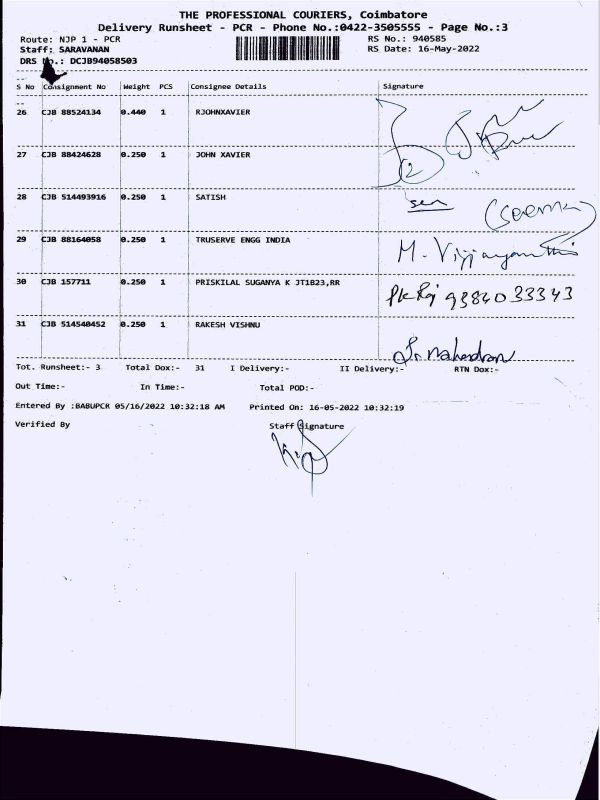 THE PROFESSIONAL COURIERS, Coimbatore
Delivery Runsheet - PCR - Phone No.:0422-3505555 - Page No.:3
Route: NJP 1 - PCR RS No.: 940585
Staff: SARAVANAN RS Date: 16-May-2022
DRS No.: DCJB94058503
S No Consignment No Weight PCS Consignee Details Signature
26 CJB 88524134 0.440 1 RJOHNXAVIER
27 CJB 88424628 0.250 1 JOHN XAVIER
28 CJB 514493916 0.250 1 SATISH (Seema)
29 CJB 88164058 0.250 1 TRUSERVE ENGG INDIA M. Vijjayanthi
30 CJB 157711 0.250 1 PRISKILAL SUGANYA K JT1B23,RR 9384033343
31 CJB 514540452 0.250 1 RAKESH VISHNU Mahendran
Tot. Runsheet:- 3 Total Dox:- 31 I Delivery:- II Delivery:- RTN Dox:-
Out Time:- In Time:- Total POD:-
Entered By :BABUPCR 05/16/2022 10:32:18 AM Printed On: 16-05-2022 10:32:19
Verified By Staff Signature